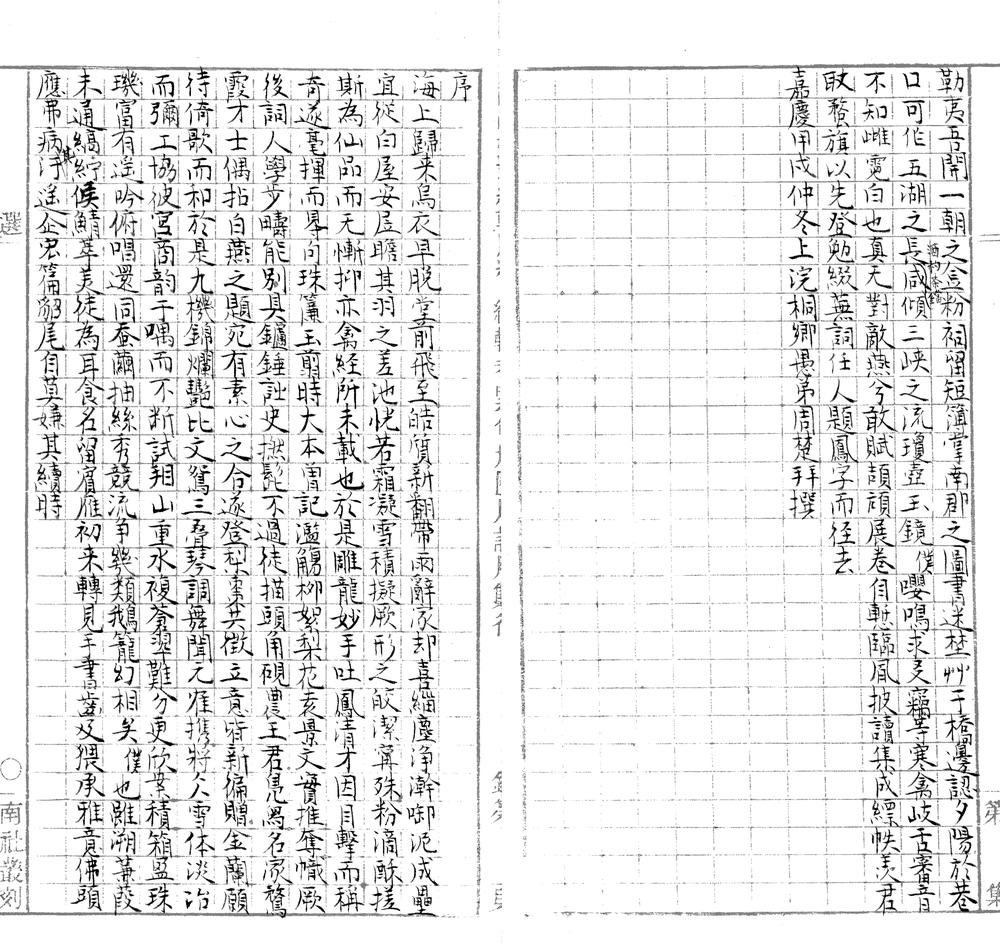 勒夷吾開一朝之盒粉袑留短簿掌南郡之圖書迷埜艸于橋邊認夕陽於巷
口可作五湖之長酒杓茶鐺咸傾三峽之流瓊壺玉鏡僕嚶鳴求友竊等寒禽岐舌審音
不知雌霓白也真无對敵燕兮敢賦頡頏展卷自慙臨風披讀集成縹帙羡君
旼蝥旗以先登勉綴蕪詞任人題鳳字而径去
嘉慶甲戍仲冬上浣桐鄉愚弟周楚拜撰
序
海上歸来烏衣早脫堂前飛至皓質新翻帶雨辭家却喜緇塵淨澣啣泥成壘
宜從白屋安居瞻其羽之差池恍若霜凝雪積擬厥形之皎潔甯殊粉滴酥搓
斯為仙品而无慚抑亦禽經所未載也於是雕龍妙手吐鳳清才因目擊而稱
奇遂毫揮而尋句珠簾玉剪時大本曽記濫觴栁絮梨花袁景文實推奪幟厥
後詞人學步疇能别具鑪錘詼史撚髭不過徒描頭角硯農王君凫為名家驚
霞才士偶拈白燕之題宛有素心之合遂登梨棗共徵立意峕新徧贈金蘭願
待倚歌而和於是九機錦爛艷比文鴛三疊琴調舞聞元雀携將人雪体淡冶
而彌工協彼宮商韵于喁而不断試翔山重水複蒼翠難分更欣案積箱盈珠
璣富有遥吟俯唱還同蚕繭抽絲秀競流争幾類鵝籠幻相矣僕也雖溯蒹葭
未通縞紵候鯖萃美徒為耳食名留賓雁初来轉見手書齒及猥承雅意佛頭
應弗病其汙遥企宏篇貂尾自莫嫌其續時
選
南社叢刻
第 集